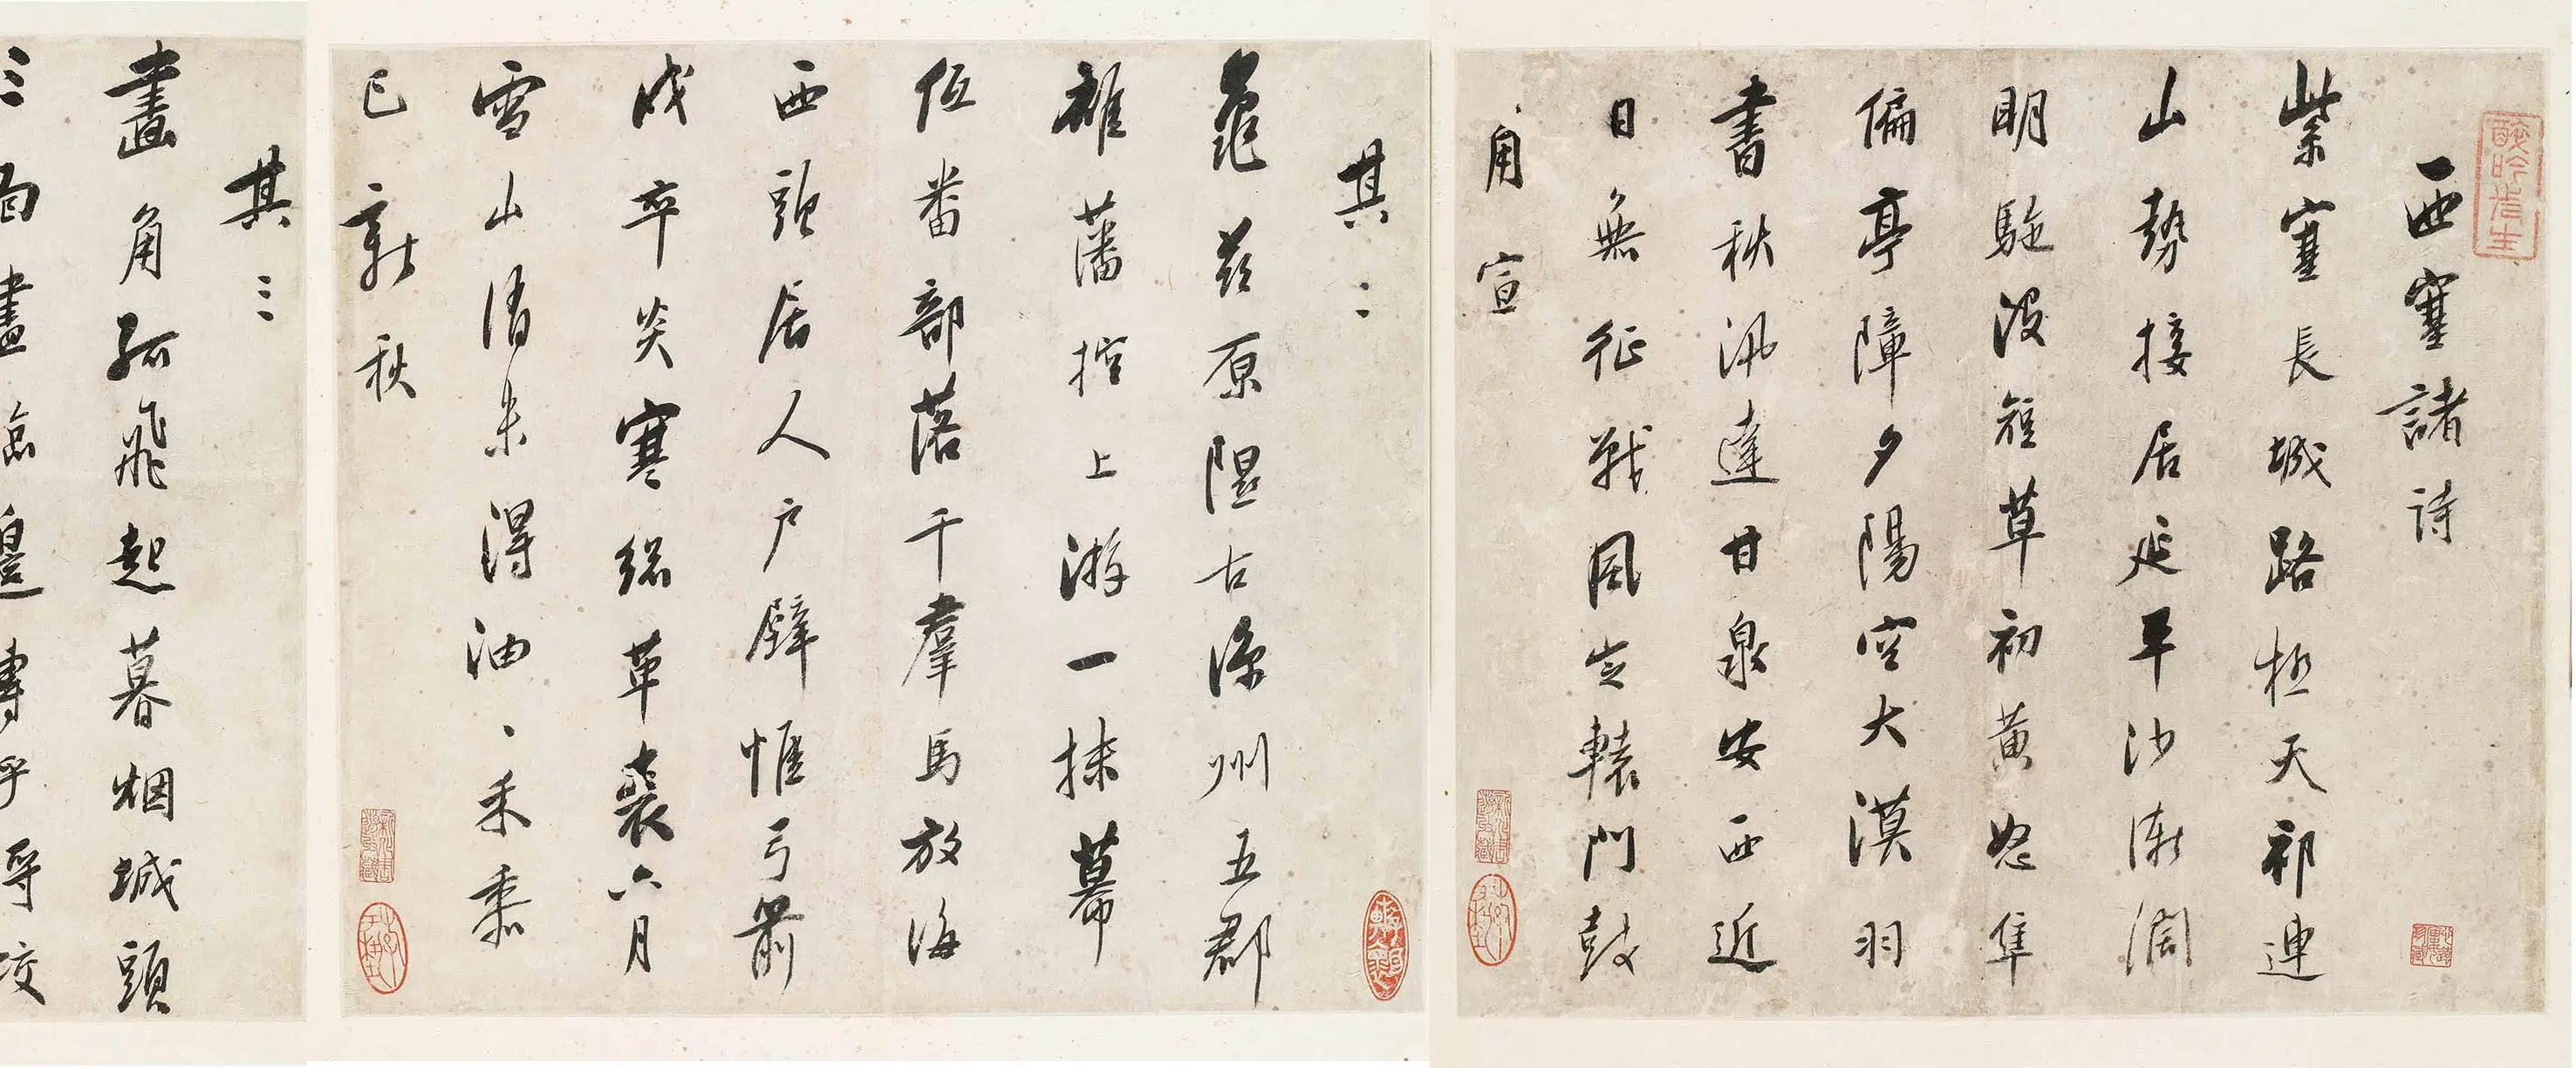 西塞諸詩
紫塞長城路極天祁連
山勢接居延平沙漸闊
明駝沒短草初黃怒隼
偏亭障夕陽空大漠羽
書秋汛達甘泉安西近
日無征戰風定轅門鼓
角宣
其二
龜茲原隰古涼州五郡
雄藩控上游一抹幕
伍番部落千羣馬放海
西頭居人戶壁惟弓箭
戍卒炎寒總革裘六月
雪山清未得油、禾黍
已新秋
其三
畫角孤飛起暮烟城頭